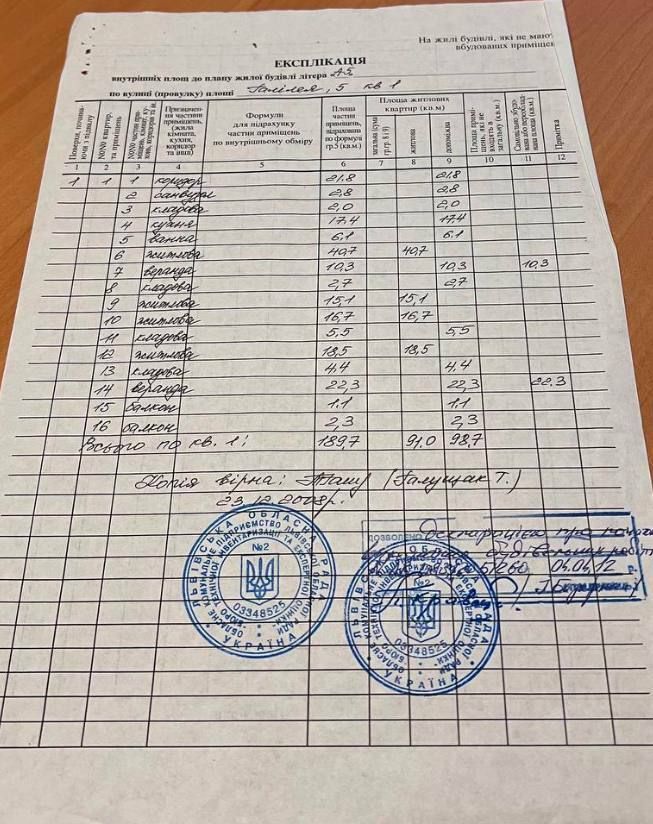 На жилі будівлі, які не мают
вбудованих приміщен
ЕКСПЛІКАЦІЯ
внутрішніх площ до плану жилої будівлі літера А-2
по вулиці (провулку) площі Галілея, 5 кв 1
Поверхи, починаючи з підвалу
№№ квартир, та приміщень
Призначення частини приміщень, (жила кімната, кухня, коридор та інш)
Формули для підрахунку частини приміщень по внутрішньому обміру
Площа частин приміщень, відрахована по формули гр.5 (кв.м)
Площа житлових квартир (кв.м)
житлова
допоміжна
Примітка
1 2 3 4 5 6 7 8 9 10 11 12
1 1 1 коридор 21,8 21,8
2 санвузол 2,8 2,8
3 кладова 2,0 2,0
4 кухня 17,4 17,4
5 ванна 6,1 6,1
6 житлова 40,7 40,7
7 веранда 10,3 10,3 10,3
8 кладова 2,7 2,7
9 житлова 15,1 15,1
10 житлова 16,7 16,7
11 кладова 5,5 5,5
12 житлова 18,5 18,5
13 кладова 4,4 4,4
14 веранда 22,3 22,3 22,3
15 балкон 1,1 1,1
16 балкон 2,3 2,3
Всього по кв. 1: 189,7 91,0 98,7
Копія вірна: (Галущак Т.)
23.12.2008р.
ДОЗВОЛЕНО
Декларацією про
04.04.12
ЛЬВІВСЬКА ОБЛАСНА РАДА
ОБЛАСНЕ КОМУНАЛЬНЕ ПІДПРИЄМСТВО ЛЬВІВСЬКОЇ ОБЛАСНОЇ РАДИ
БЮРО ТЕХНІЧНОЇ ІНВЕНТАРИЗАЦІЇ ТА ЕКСПЕРТНОЇ ОЦІНКИ
№2
03348525
УКРАЇНА
№2
03348525
УКРАЇНА